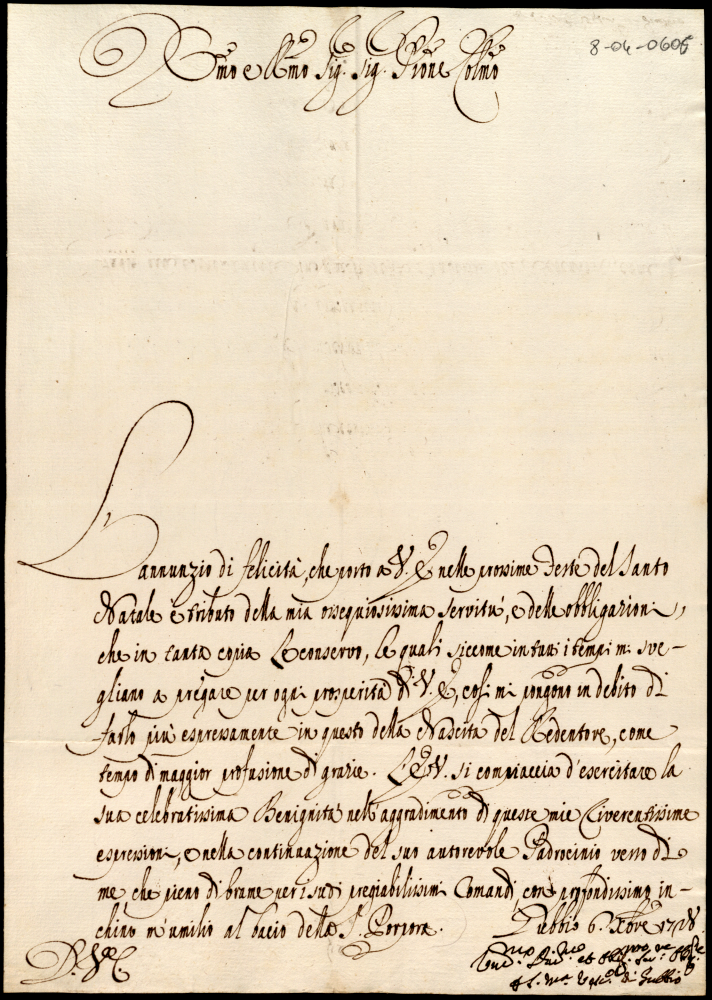 8-04-0606
Emo e Rmo Sig. Sig. Prone Colmo
L'annunzio di felicità, che porto a V. E. nelle prossime Feste del Santo
Natale è tributo della mia ossequiosissima servitù, e delle obbligazioni,
che in tanta copia Le conservo, le quali siccome in tutti i tempi mi sve-
gliano a pregare per ogni prosperità di V. E., così mi pongono in debito di
farlo più espressamente in questo della Nascita del Redentore, come
tempo di maggior profusione di grazie. L'E. V. si compiaccia d'esercitare la
sua celebratissima Benignità nell'aggradimento di queste mie riverentissime
espressioni, e nella continuazione del suo autorevole Padrocinio verso di
me che pieno di brame per i suoi pregiabilissimi Comandi, con profondissimo in-
chino m'umilio al bacio della S. Porpora. Gubbio 6. Xbre 1718
D. V. E.
di Gubbio